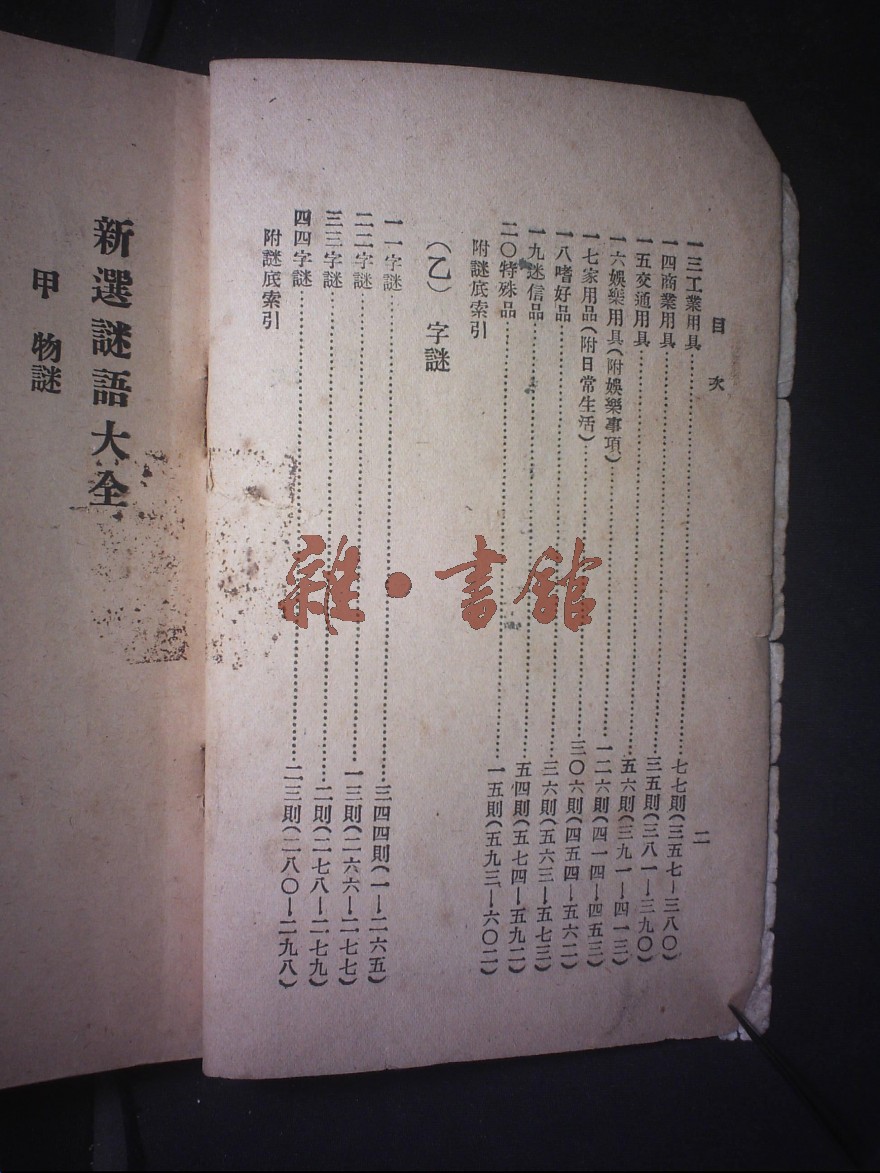 目次
二
一三工業用具……七七則(三五七—三八〇)
一四商業用具……三五則(三八一—三九〇)
一五交通用具……五六則(三九一—四一三)
一六娛樂用具(附娛樂事項)……一二六則(四一四—四五三)
一七家用品(附日常生活)……三〇六則(四五四—五六二)
一八嗜好品……三六則(五六三—五七三)
一九迷信品……五四則(五七四—五九二)
二〇特殊品……一五則(五九三—六〇二)
附謎底索引
(乙)字謎
一一字謎……三四四則(一—二六五)
二二字謎……一三則(二六六—二七七)
三三字謎……二則(二七八—二七九)
四四字謎……二三則(二八〇—二九八)
附謎底索引
新選謎語大全
甲 物謎
雜·書館